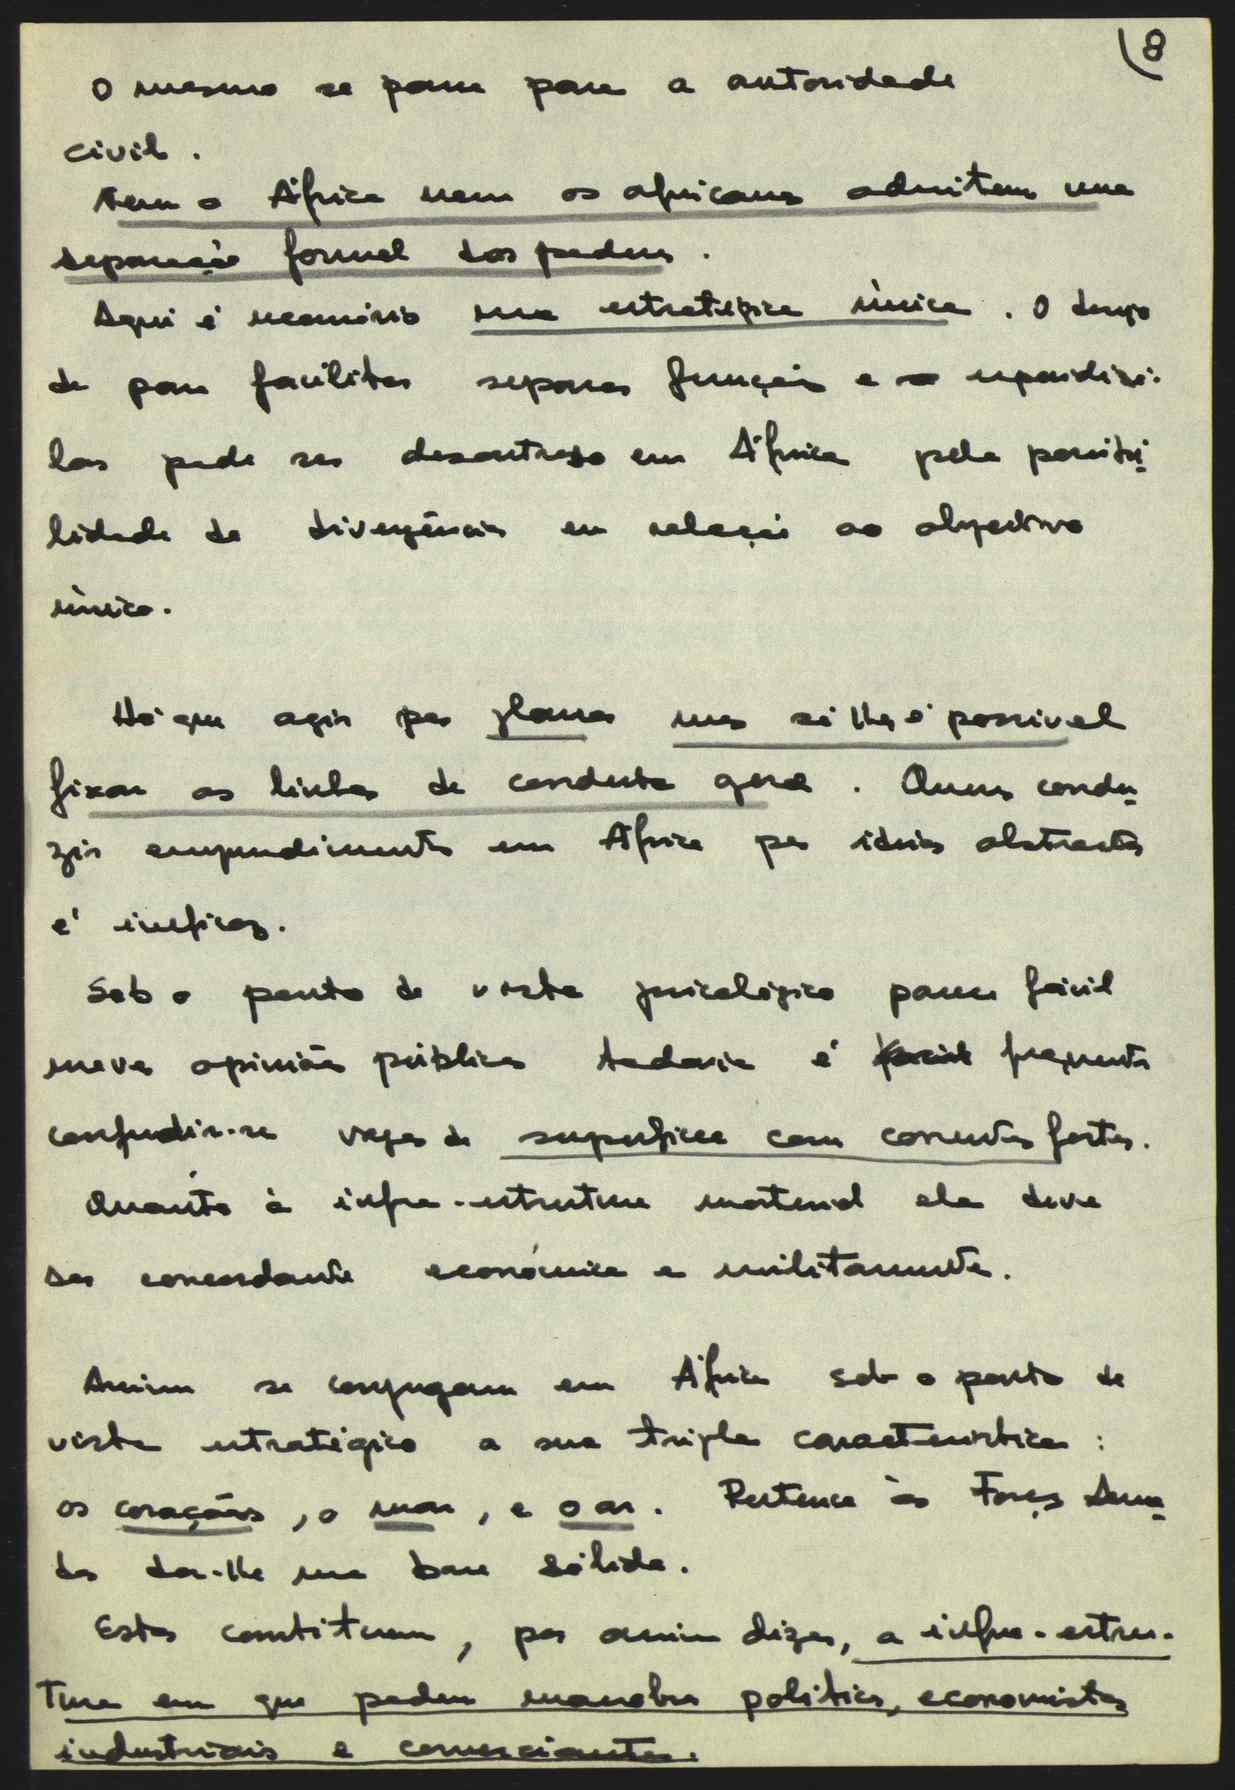 8
O mesmo se passa para a autoridade
civil.
Nem a África nem os africanos admitem uma
separação formal dos poderes.
Aqui é necessário uma estratégica única. O desejo
de para facilitar separar funções e a repartir-
las pode ser desastroso em África pela possibi
lidade de divergências em relação ao objectivo
único.
Há que agir por planos mas só lhes é possivel
fixar as linhas de conduta geral. Querer condu
zir empreendimentos em África por ideias abstractas
é ineficaz.
Sob o ponto de vista psicológico parece fácil
mover opiniões públicas todavia é frequente
confundir-se vagas de superfície com correntes fortes.
Quanto à infra-estrutura material ela deve
ser concordante económica e militarmente.
Assim se conjugam em África sob o ponto de
vista estratégico a sua tripla caracteristica:
os corações, o mar, e o ar. Pertence às Forças Arma
das dar-lhe uma base sólida.
Estas constituem, por assim dizer, a infra-estru-
tura em que podem manobrar politicos, economistas
industriais e comerciantes.